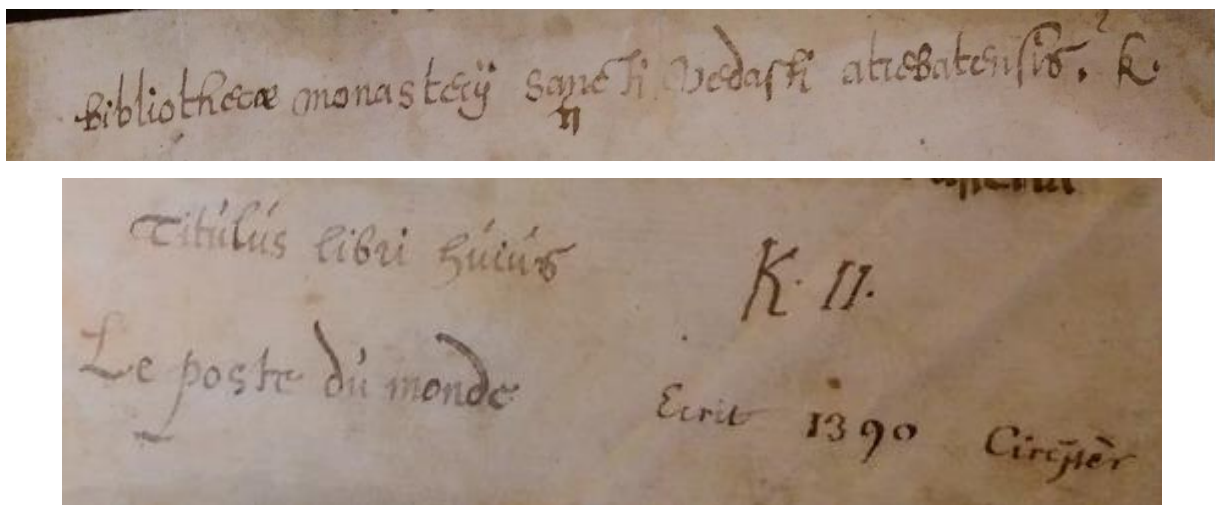 Bibliothecæ monasterij sancti Vedasti atrebatensis. 2 K.
n
Titúlús libri húiús
K. II.
Le poste dú monde
Ecrit 1390 Circiter